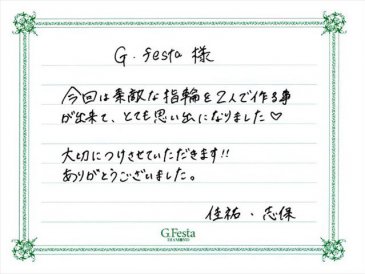 G.festa 様
今回は素敵な指輪を2人で作る事
が出来て、とても思い出になりました♡
大切につけさせていただきます!!
ありがとうございました。
佳祐・志保
G.Festa
DIAMOND